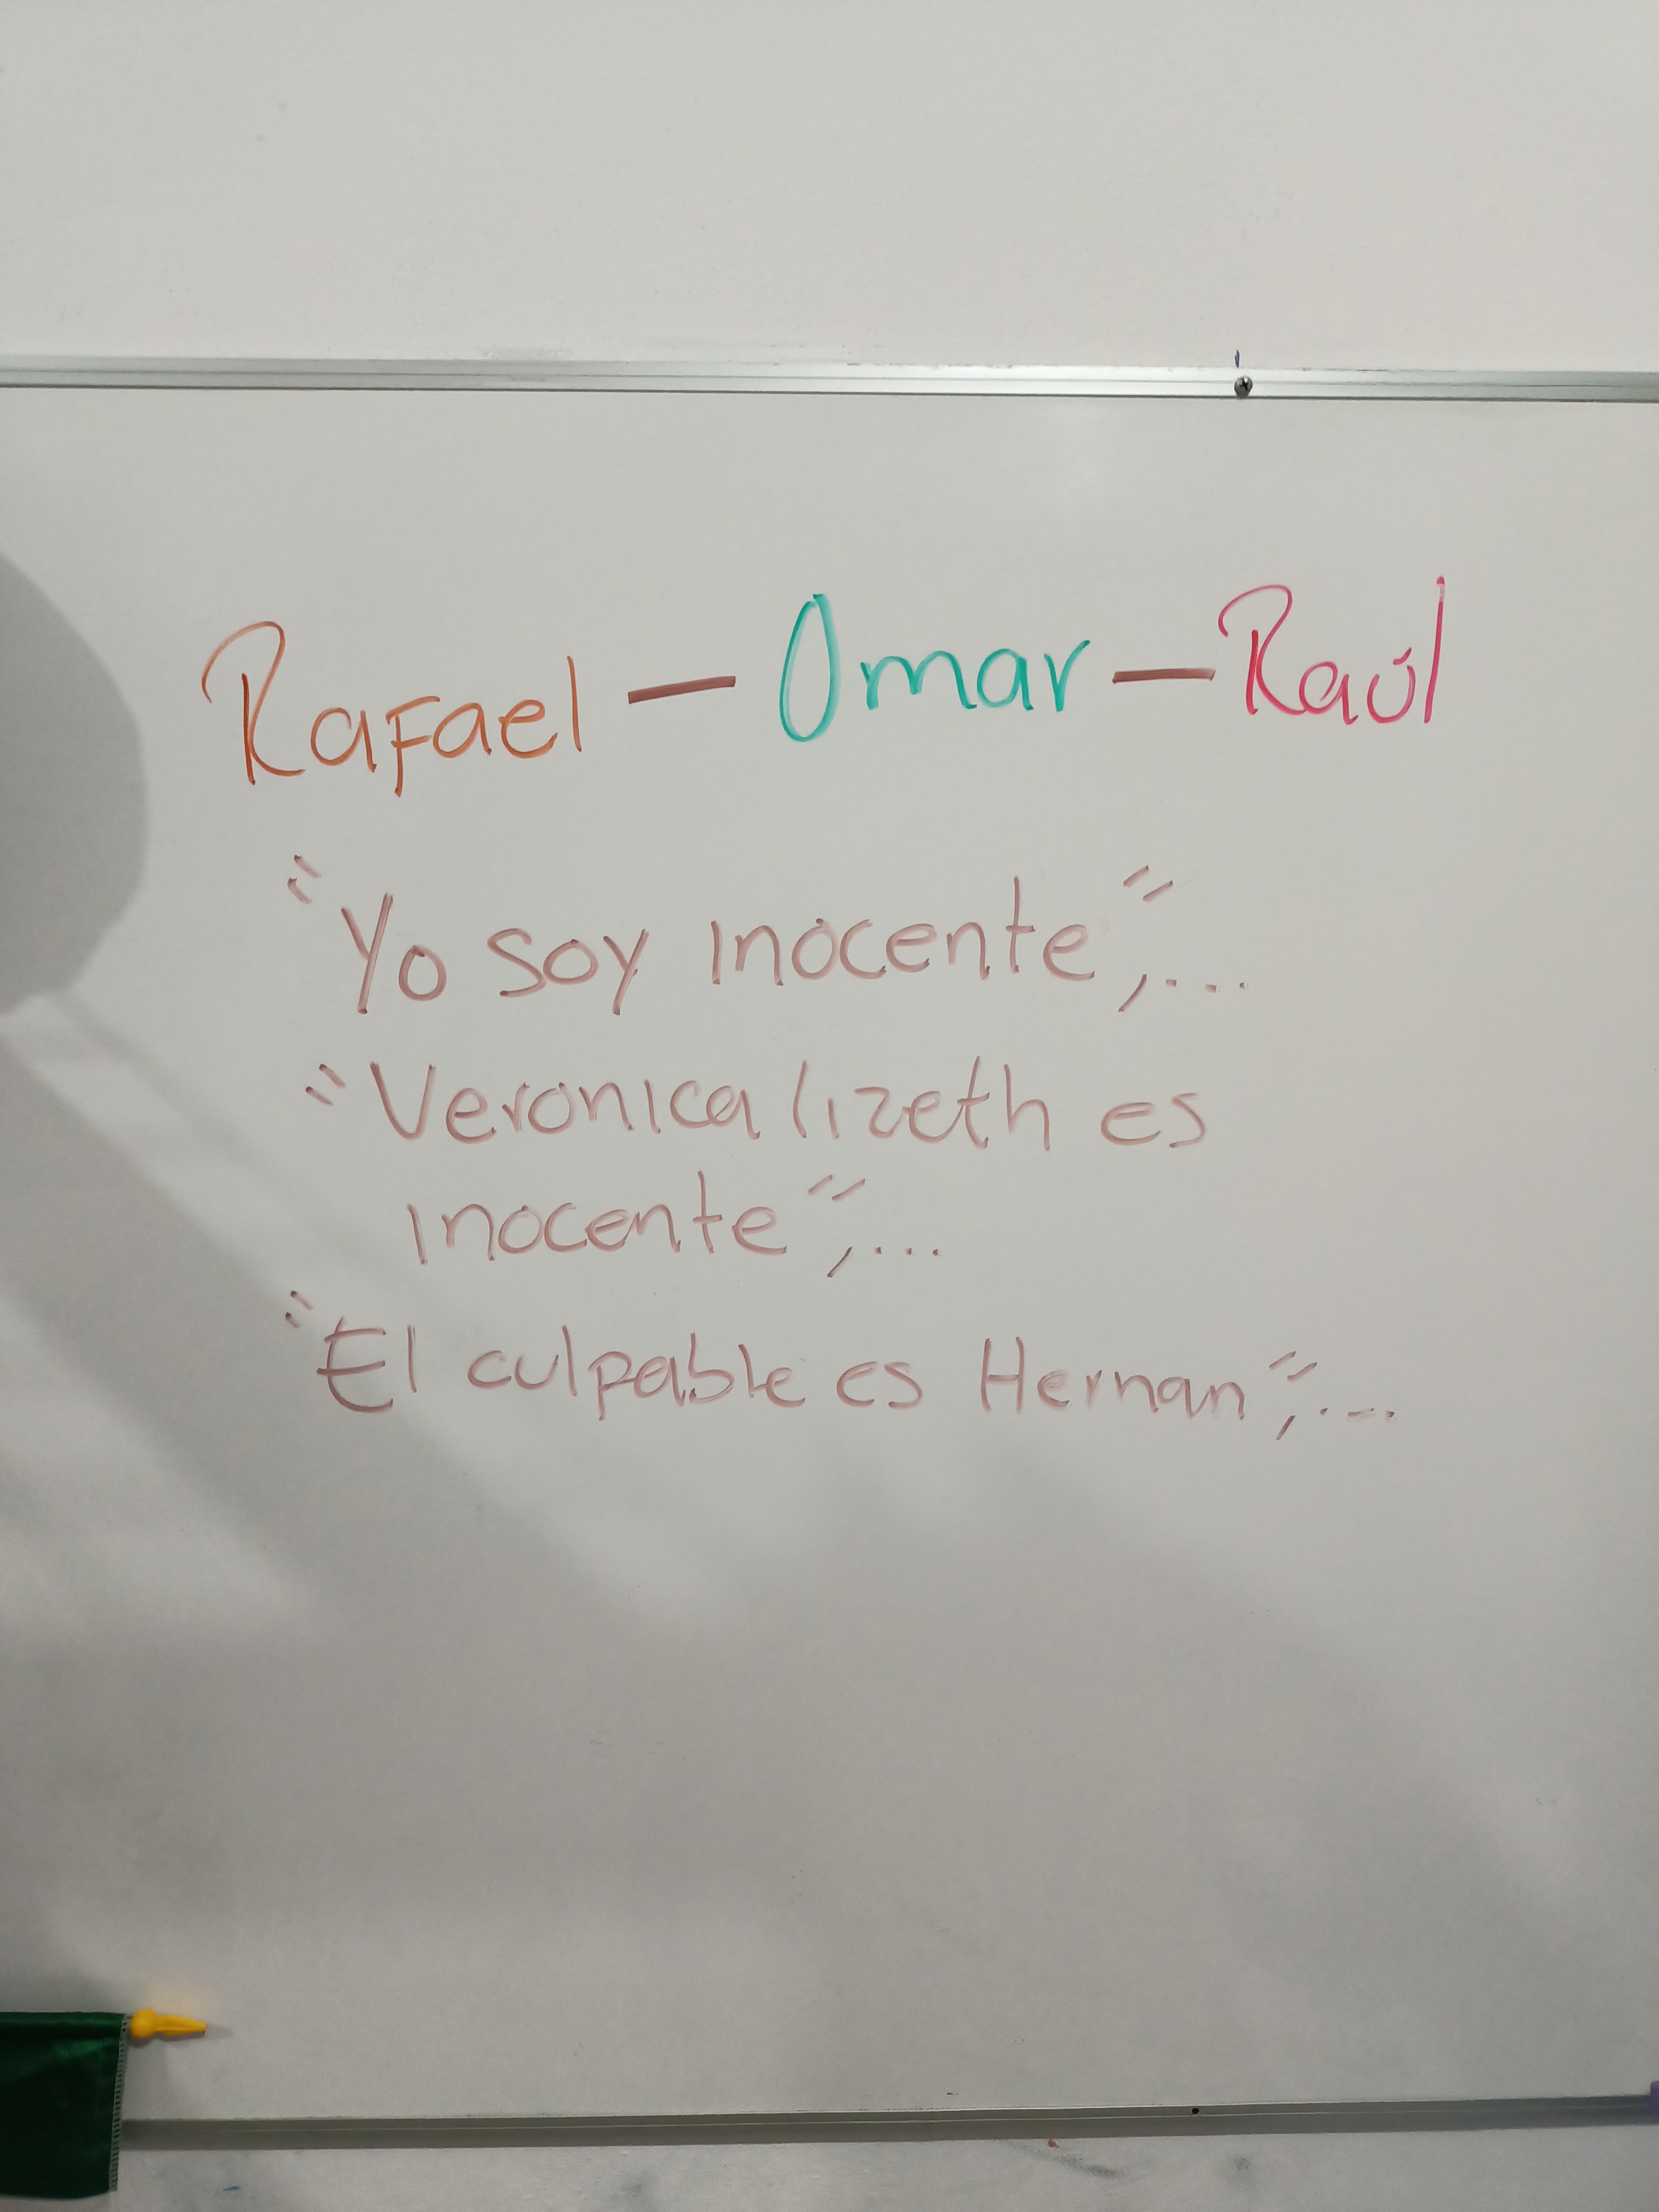 Rafael — Omar — Raúl
"Yo soy inocente",...
"Veronica lizeth es
inocente",...
"El culpable es Hernan",...